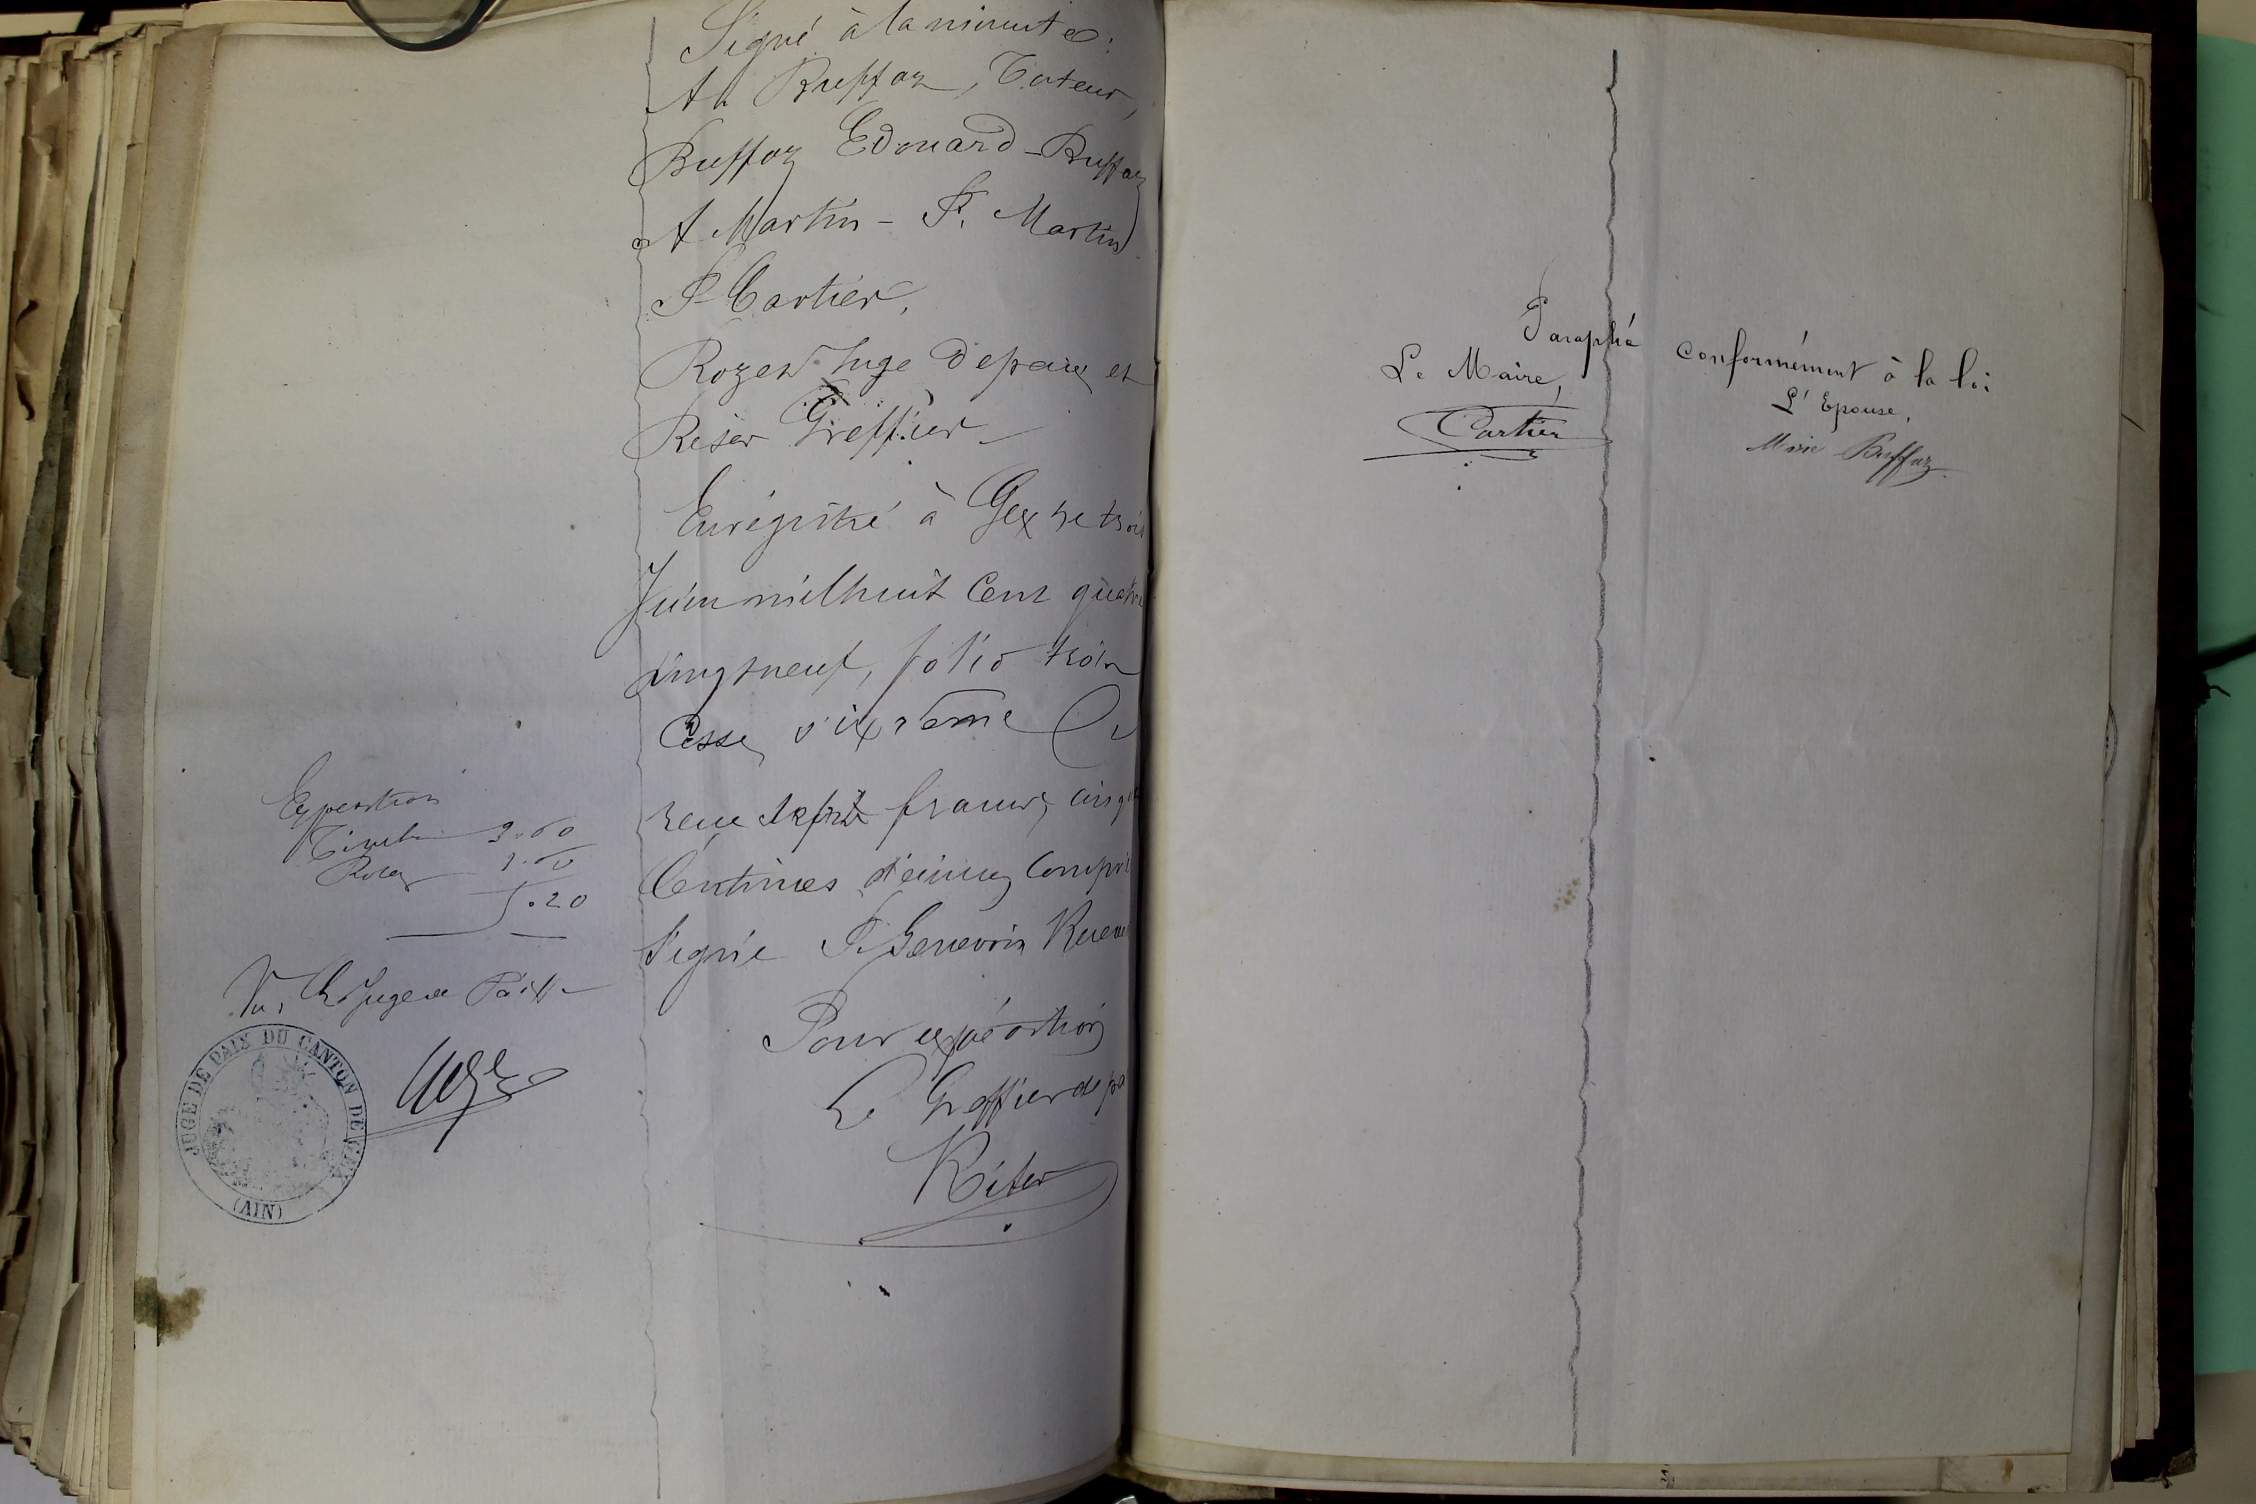 Signé à la minute:
A Buffaz, Tuteur,
Buffaz Edouard - Buffaz
A Martin - F. Martin
F Cartier,
Rozer Juge de paix et
Reser Greffier
Enrégistré à Gex le trois
Juin mil huit cent quatre
vingt neuf, folio trois
Casse sixième
francs
Centimes décimes compris
Signé Genevois
Pour expédition
Le Greffier de pa
Expedition
Timbre 3.60
Roles 1.60
5.20
Vu, Le Juge de Paix
JUGE DE PAIX DU CANTON DE GEX
(AIN)
Paraphé conformément à la loi
Le Maire,
Cartier
L'Epouse,
Marie Buffaz